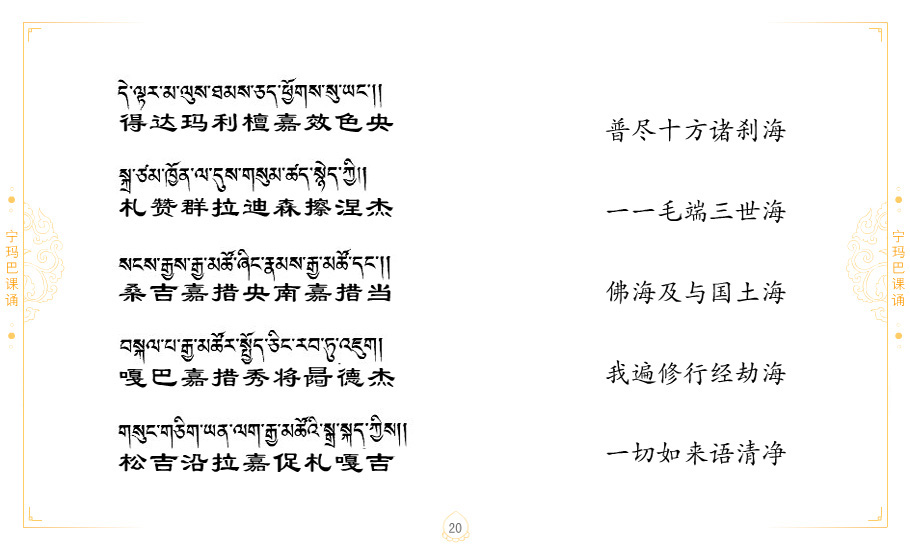 དེ་ལྟར་མ་ལུས་ཐམས་ཅད་ཕྱོགས་སུ་ཡང་།།
得达玛利檀嘉效色央
普尽十方诸刹海
སྐྲ་ཙམ་ཁྱོན་ལ་དུས་གསུམ་ཚད་སྙེད་ཀྱི།།
札赞群拉迪森擦涅杰
一一毛端三世海
སངས་རྒྱས་རྒྱ་མཚོ་ཞིང་རྣམས་རྒྱ་མཚོ་དང་།།
桑吉嘉措央南嘉措当
佛海及与国土海
བསྐལ་པ་རྒྱ་མཚོར་སྤྱོད་ཅིང་རབ་ཏུ་འཇུག།
嘎巴嘉措秀将德杰
我遍修行经劫海
གསུང་གཅིག་ཡན་ལག་རྒྱ་མཚོའི་སྒྲ་སྐད་ཀྱིས།།
松吉沿拉嘉促札嘎吉
一切如来语清净
宁玛巴课诵
宁玛巴课诵
20